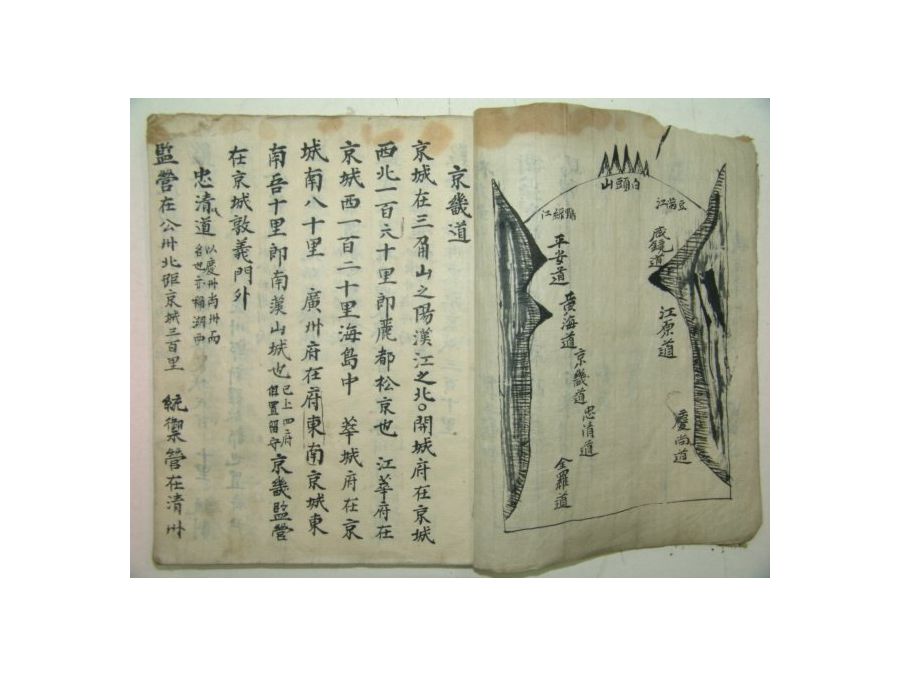 白頭山
豆滿江
鴨綠江
咸鏡道
平安道
江原道
黃海道
京畿道
忠清道
慶尚道
全羅道
京畿道
京城在三角山之陽漢江之北○開城府在京城
西北一百六十里即麗都松京也 江華府在
京城西一百二十里海島中 華城府在京
城南八十里 廣州府在府東南京城東
南五十里即南漢山城也 已上四府但置留守 京畿監營
在京城敦義門外
忠清道
監營在公州北距京城三百里 統禦營在清州